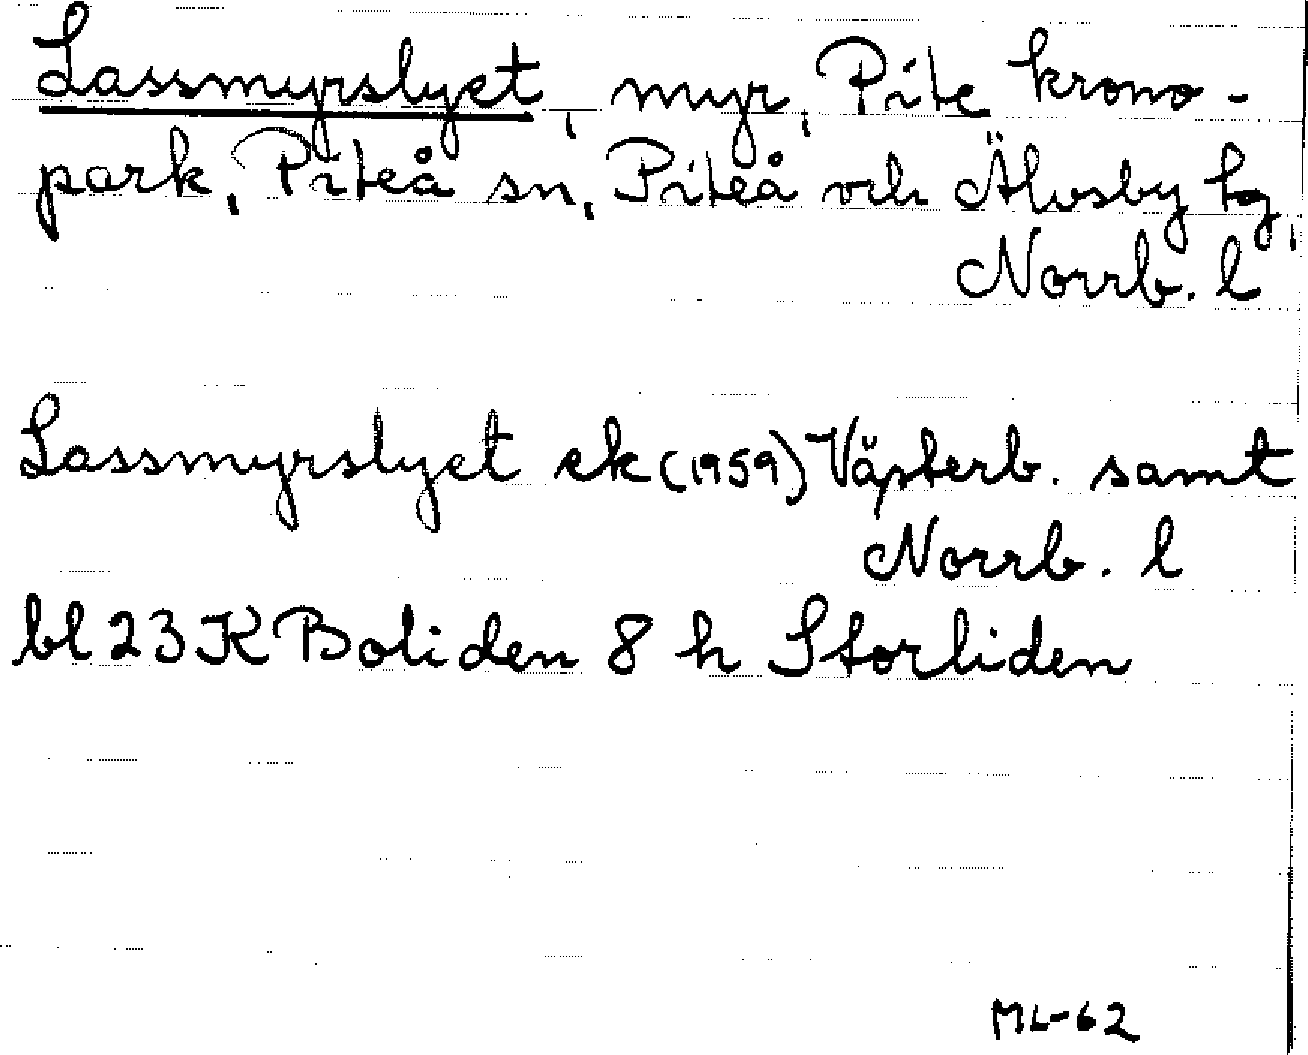 Lassmyrslyet, myr, Pite krono-
park, Piteå sn, Piteå och Älvsby tg,
Norrb. l
Lassmyrslyet ek (1959) Västerb. samt
Norrb. l
bl 23 K Boliden 8 h Storliden
ML-62